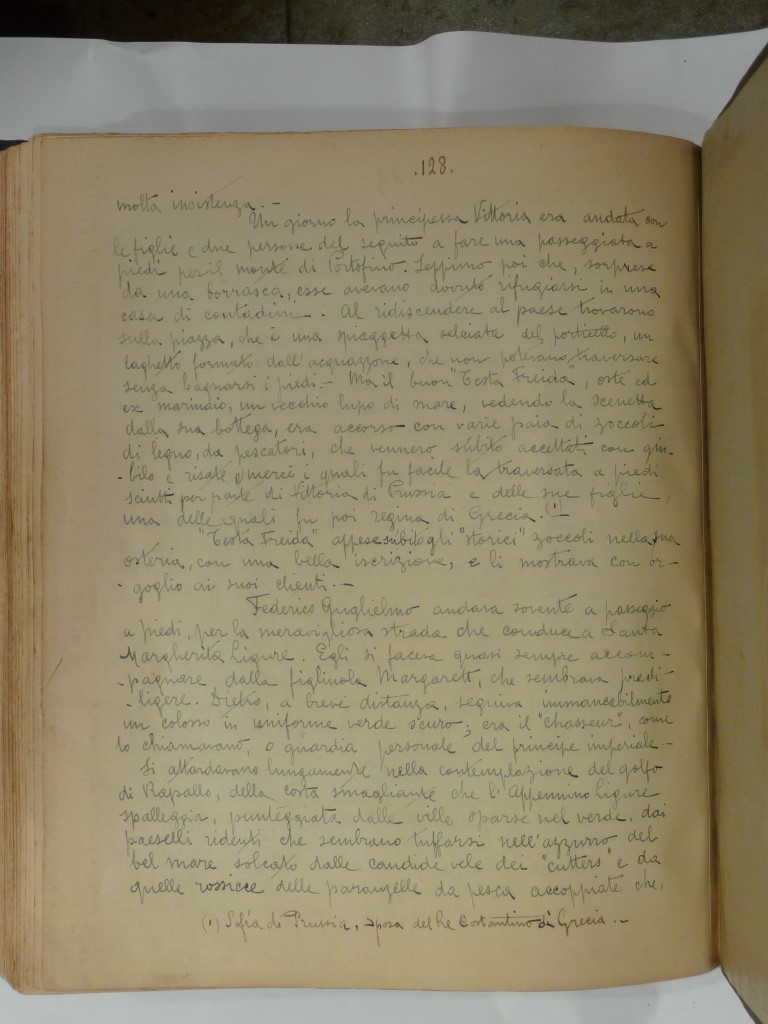 .128.
molta insistenza. -
Un giorno la principessa Vittoria era andata con
le figlie e due persone del seguito a fare una passeggiata a
piedi per il monte di Portofino. Seppimo poi che, sorprese
da una borrasca, esse avevano dovuto rifugiarsi in una
casa di contadini. Al ridiscendere al paese trovarono
sulla piazza, che è una spiaggetta selciata del porticello, un
laghetto formato dall'acquazzone, che non potevano traversare
senza bagnarsi i piedi. - Ma il buon "Testa Freida", oste ed
ex marinaio, un vecchio lupo di mare, vedendo la scenetta
dalla sua bottega, era accorso con varie paia di zoccoli
di legno, da pescatori, che vennero subito accettati con giu-
- bilo e risate e mercè i quali fu facile la traversata a piedi
sciutti per parte di Vittoria di Prussia e delle sue figlie,
una delle quali fu poi regina di Grecia. (1)
"Testa Freida" appese subito gli "storici" zoccoli nella sua
osteria, con una bella iscrizione, e li mostrava con or-
- goglio ai suoi clienti. -
Federico Guglielmo andava sovente a passeggio
a piedi, per la meravigliosa strada che conduce a Santa
Margherita Ligure. Egli si faceva quasi sempre accom-
- pagnare dalla figliuola Margarett, che sembrava predi-
- ligere. Dietro, a breve distanza, seguiva immancabilmente
un colosso in uniforme verde scuro; era il "chasseur", come
lo chiamavano, o guardia personale del principe imperiale. -
Si attardavano lungamente nella contemplazione del golfo
di Rapallo, della costa smagliante che l'Appennino Ligure
spalleggia, punteggiata dalle ville sparse nel verde, dai
paeselli ridenti che sembrano tuffarsi nell'azzurro del
bel mare solcato dalle candide vele dei "cutters" e da
quelle rossicce delle paranzelle da pesca accoppiate che,
(1) Sofia di Prussia, sposa del Re Costantino di Grecia. -